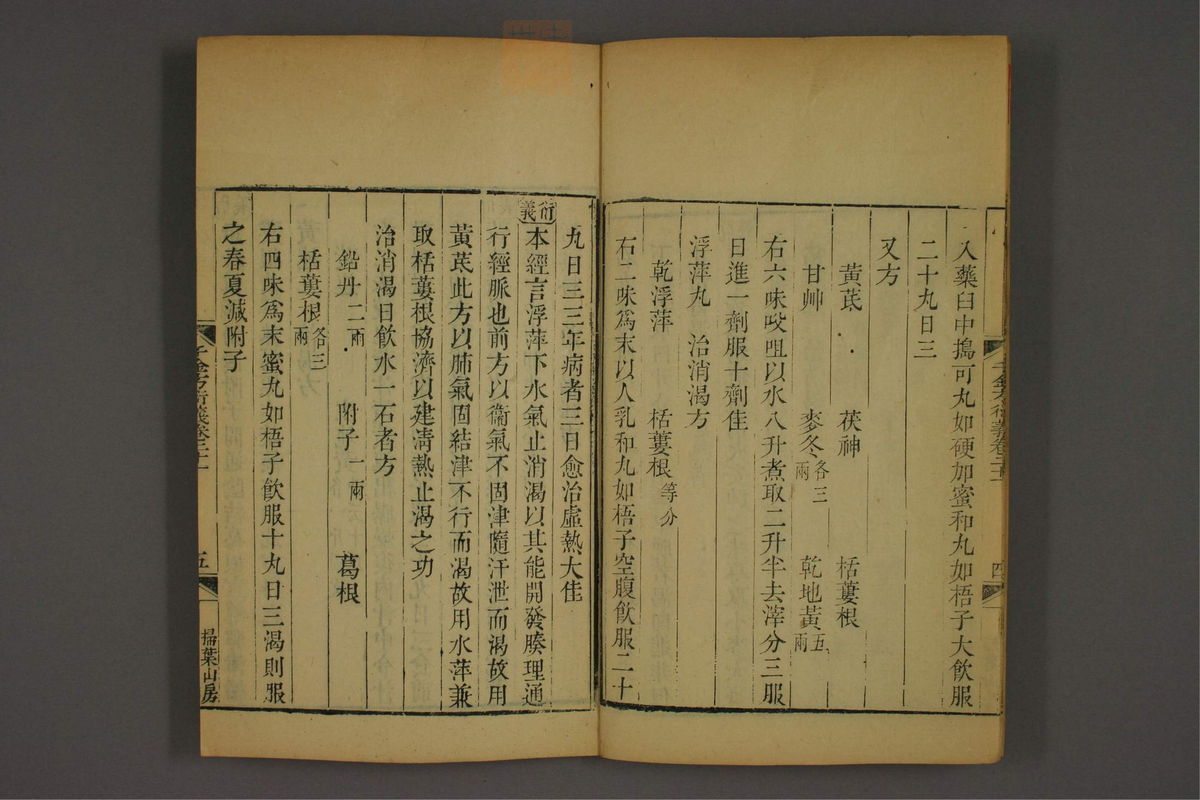 入藥臼中搗可丸如硬加蜜和丸如梧子大飲服
二十丸日三
又方
黃芪 茯神 栝蔞根
甘艸 麥冬各三兩 乾地黃五兩
右六味㕮咀以水八升煮取二升半去滓分三服
日進一劑服十劑佳
浮萍丸 治消渴方
乾浮萍 栝蔞根等分
右二味爲末以人乳和丸如梧子空腹飲服二十
千金方衍義卷二十一 四
九日三三年病者三日愈治虛熱大佳
衍義 本經言浮萍下水氣止消渴以其能開發腠理通
行經脈也前方以衞氣不固津隨汗泄而渴故用
黃芪此方以肺氣固結津不行而渴故用水萍兼
取栝蔞根協濟以建清熱止渴之功
治消渴日飲水一石者方
鉛丹二兩 附子一兩 葛根
栝蔞根各三兩
右四味爲末蜜丸如梧子飲服十丸日三渴則服
之春夏減附子
千金方衍義卷二十一 五 掃葉山房